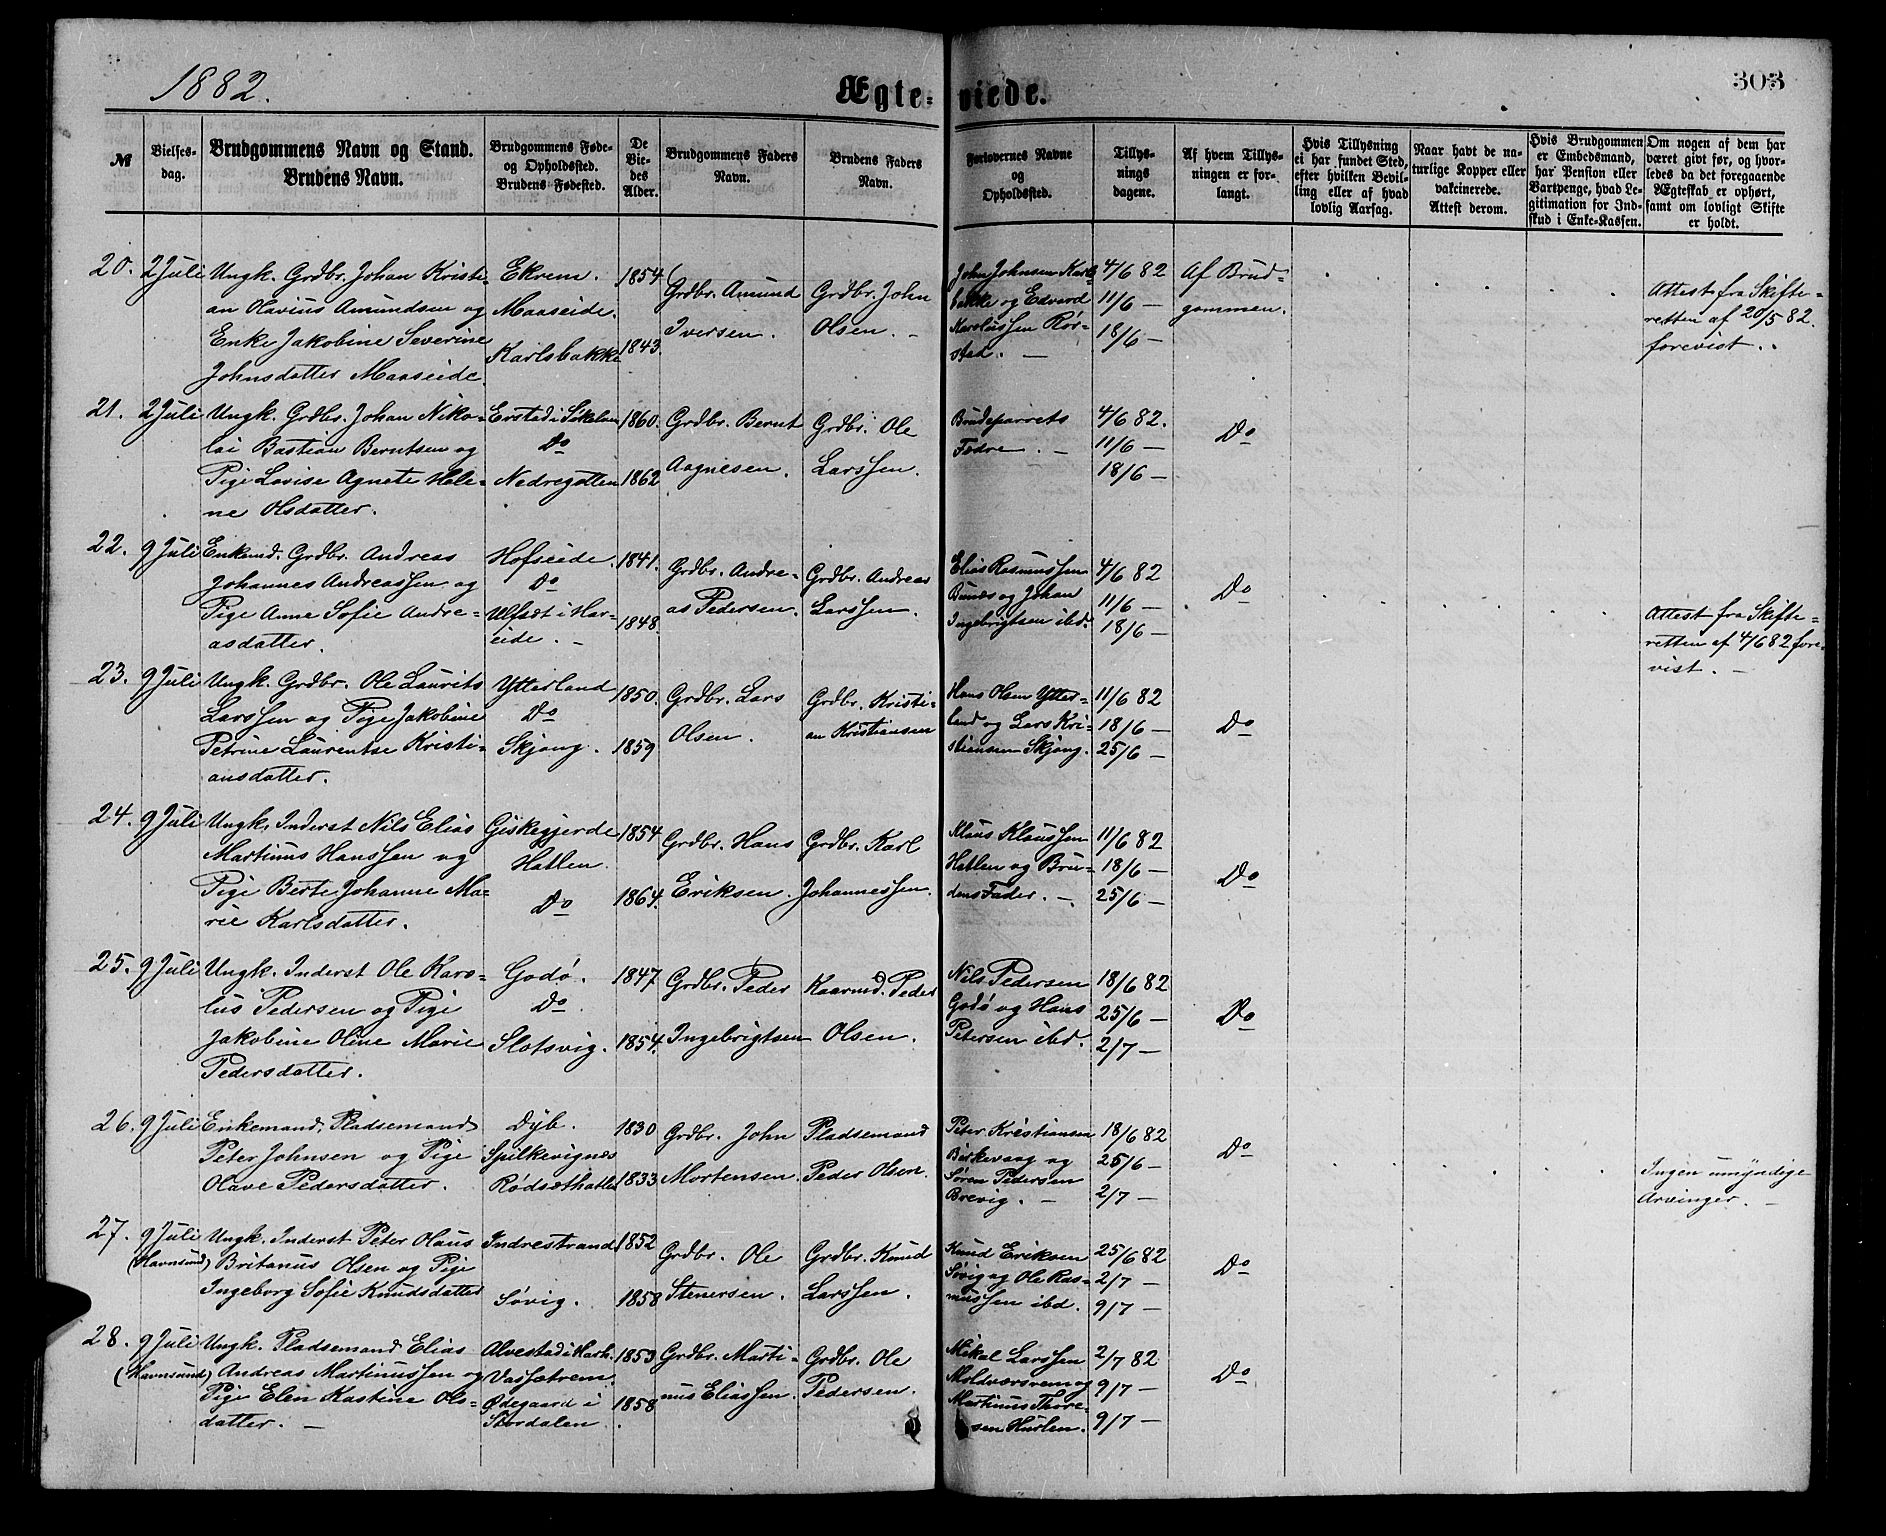 1882.
Ægte-viede.
303
№
Vielses-dag.
Brudgommens Navn og Stand.
Brudens Navn.
Brudgommens Føde- og Opholdssted.
Brudens Fødested.
De Viedes Alder.
Brudgommens Faders Navn.
Brudens Faders Navn.
Forlovernes Navne og Opholdssted.
Tillysningsdagene.
Af hvem Tillysningen er forlangt.
Hvis Tillysning ei har fundet Sted, efter hvilken Bevilling eller af hvad lovlig Aarsag.
Naar havt de naturlige Kopper eller vakcinerede. Attest derom.
Hvis Brudgommen er Embedsmand, har Pension eller Vartpenge, hvad Legitimation for Indskud i Enke-Kassen.
Om nogen af dem har været givt før, og hvorledes da det foregaaende Ægteskab er ophørt, samt om lovligt Skifte er holdt.
20. 2 Juli Ungk. Grdbr. Johan Kristi- Ekrem. 1854 Grdbr. Amund Grdbr. John John Johnsen Karls- 4/6 82 Af Brud-
an Olavius Amundsen og Maaseide. Iversen. Olsen. – bakke og Edvard 11/6 – gommen. Attest fra Skifte-
Enke Jakobine Severine Karlsbakke 1843. Karolussen Rør- 18/6 – retten af 20/5 82.
Johnsdatter Maaseide. stad. – forevist.
21. 2 Juli Ungk. Grdbr. Johan Niko- Erstad i Søkelven 1860. Grdbr. Bernt Grdbr. Ole Brudeparrets 4/6 82. Do
lai Bastian Berntsen og Do Aagnesen. Larssen. Fædre. – 11/6 –
Pige Lovise Agnete Hele- Nedregotten 1862 18/6 –
ne Olsdatter.
22. 9 Juli Enkemd. Grdbr. Andreas Hofseide. 1841. Grdbr. Andre- Grdbr. Andreas Elias Rasmussen 4/6 82 Do
Johannes Andreassen og Do as Pedersen. Larssen. og Johan 11/6 – Attest fra Skifte-
Pige Anne Sofie Andre- Ulfsæt i Har- 1848. Ingebrigtsen ibd. 18/6 – retten af 4/6 82 fore-
asdatter. eide. – vist. –
23. 9 Juli Ungk. Grdbr. Ole Laurits Ytterland 1850. Grdbr. Lars Grdbr. Kristi- Hans Olsen Ytter- 11/6 82 Do
Larssen og Pige Jakobine Do Olsen. an Kristiansen land og Lars Kri- 18/6 –
Petrine Laurentse Kristi- Skjong. 1859 stiansen Skjong. 25/6 –
ansdatter.
24. 9 Juli Ungk. Inderst Nils Elias Giskegjerde 1854 Grdbr. Hans Grdbr. Karl Klaus Klaussen 11/6 82 Do
Martinus Hanssen og Hatlen. Eriksen. Johannessen. Hatlen og Bru- 18/6 –
Pige Berte Johanne Ma- Do 1864. dens Fader. – 25/6 –
rie Karlsdatter.
25. 9 Juli Ungk. Inderst Ole Karo- Godø. 1847 Grdbr. Peder Kaarmd. Peder Nils Pedersen 18/6 82 Do
lus Pedersen og Pige Do Ingebrigtsen Olsen. Godø og Hans 25/6 –
Jakobine Oline Marie Slotsvig. 1854. Petersen ibd. 2/7 –
Pedersdatter.
26. 9 Juli Enkemand, Pladsemand Dyb. 1830 Grdbr. John Pladsemand Peter Kristiansen 18/6 82 Do
Peter Johnsen og Pige Spilkevignes Mortensen. Peder Olsen. Birkevaag og 25/6 – Ingen umyndige
Olave Pedersdatter. Rødsæthatlen 1833 Søren Pedersen Brevig. – 2/7 – Arvinger. –
27. 9 Juli Ungk. Inderst Peter Olaus Indrestrand 1852 Grdbr. Ole Grdbr. Knud Knud Eriksen 25/6 82 Do
(Havnsund) Britanus Olsen og Pige Stenersen. Larssen. Søvig og Ole Ras- 2/7 –
Ingeborg Sofie Knudsdatter Søvig. 1858 mussen ibd. 9/7 –
28. 9 Juli Ungk. Pladsemand Elias Alvestad i Hark. 1853 Grdbr. Marti- Grdbr. Ole Mikal Larssen 2/7 82 Do
(Havnsund) Andreas Martinussen og Vassætrem. nus Eliassen. Pedersen. Moldværsrem og 9/7 –
Pige Elen Kastine Ols- Ødegaard i 1858 Martinus Thore- 9/7 –
datter. – Stordalen. sen Hurlen.